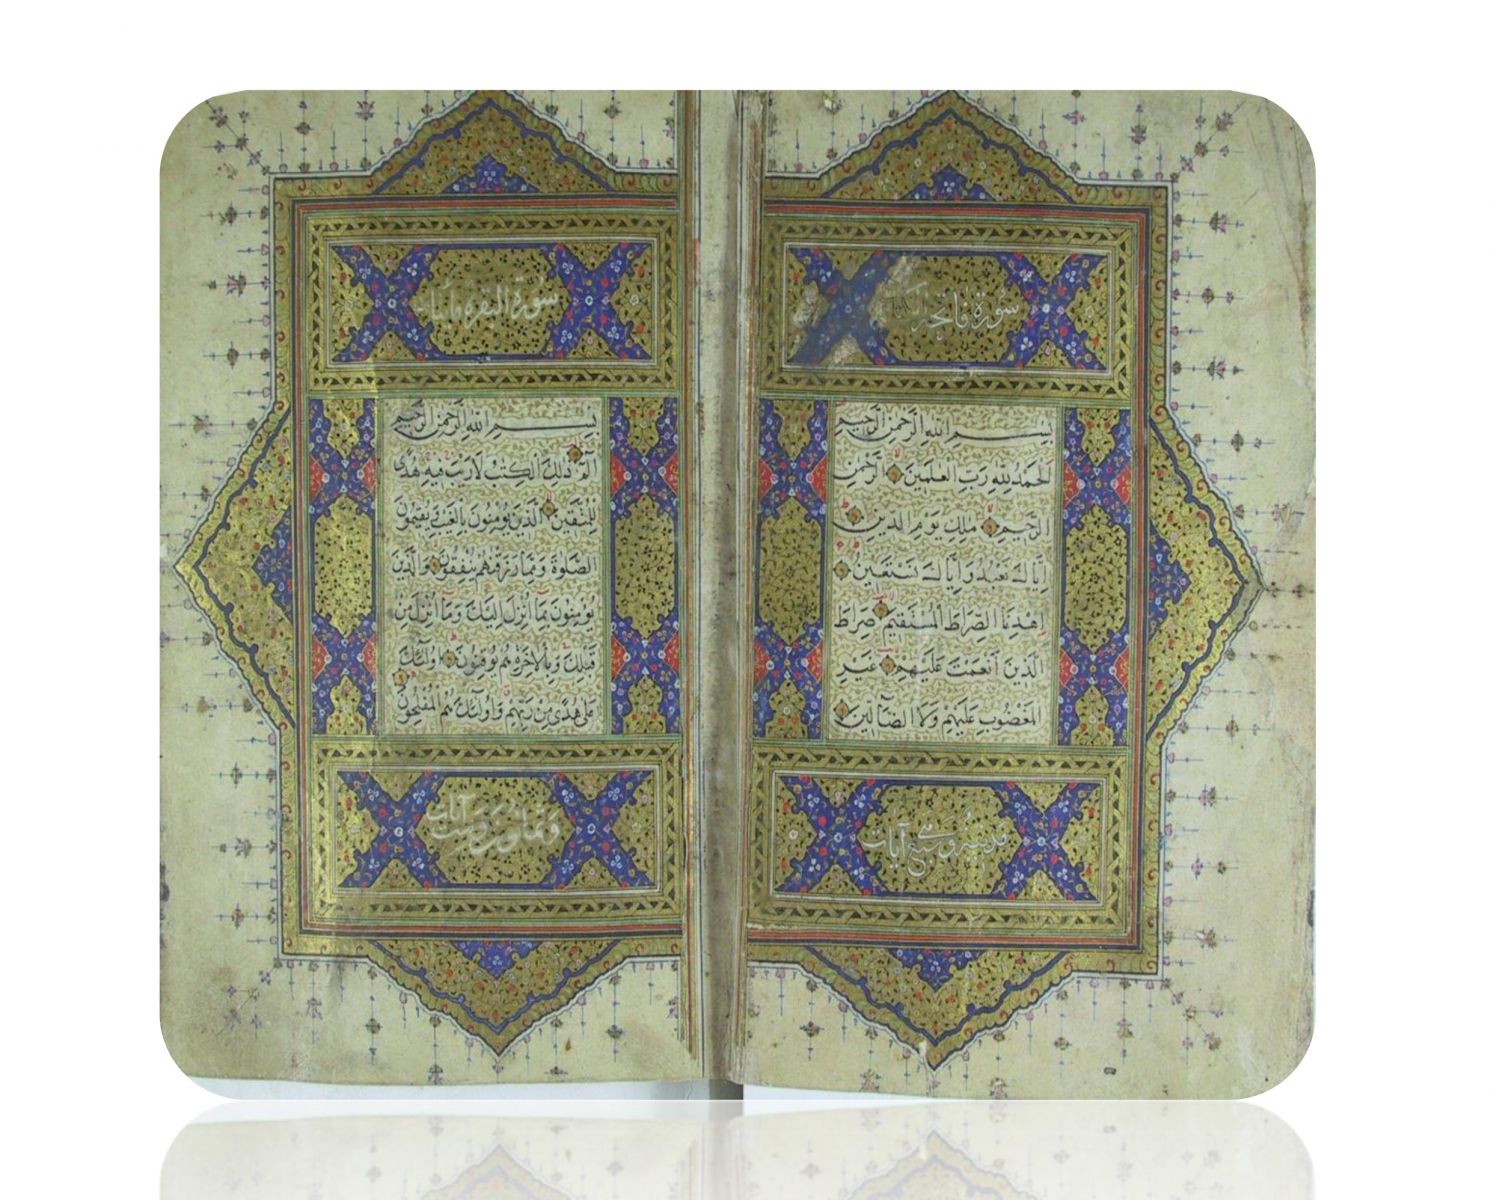 سورة فاتحة الكتاب
بسم الله الرحمن الرحيم
الحمد لله رب العلمين الرحمن
الرحيم ملك يوم الدين
اياك نعبد واياك نستعين
اهدنا الصراط المستقيم صراط
الذين انعمت عليهم غير
المغضوب عليهم ولا الضالين
مدنية وهي سبع آيات
سورة البقره مائتا
بسم الله الرحمن الرحيم
الم ذلك الكتب لا ريب فيه هدى
للمتقين الذين يؤمنون بالغيب ويقيمون
الصلوة ومما رزقنهم ينفقون والذين
يؤمنون بما انزل اليك وما انزل من
قبلك وبالاخرة هم يوقنون اولئك
على هدى من ربهم واولئك هم المفلحون
وثمانون وست آيات